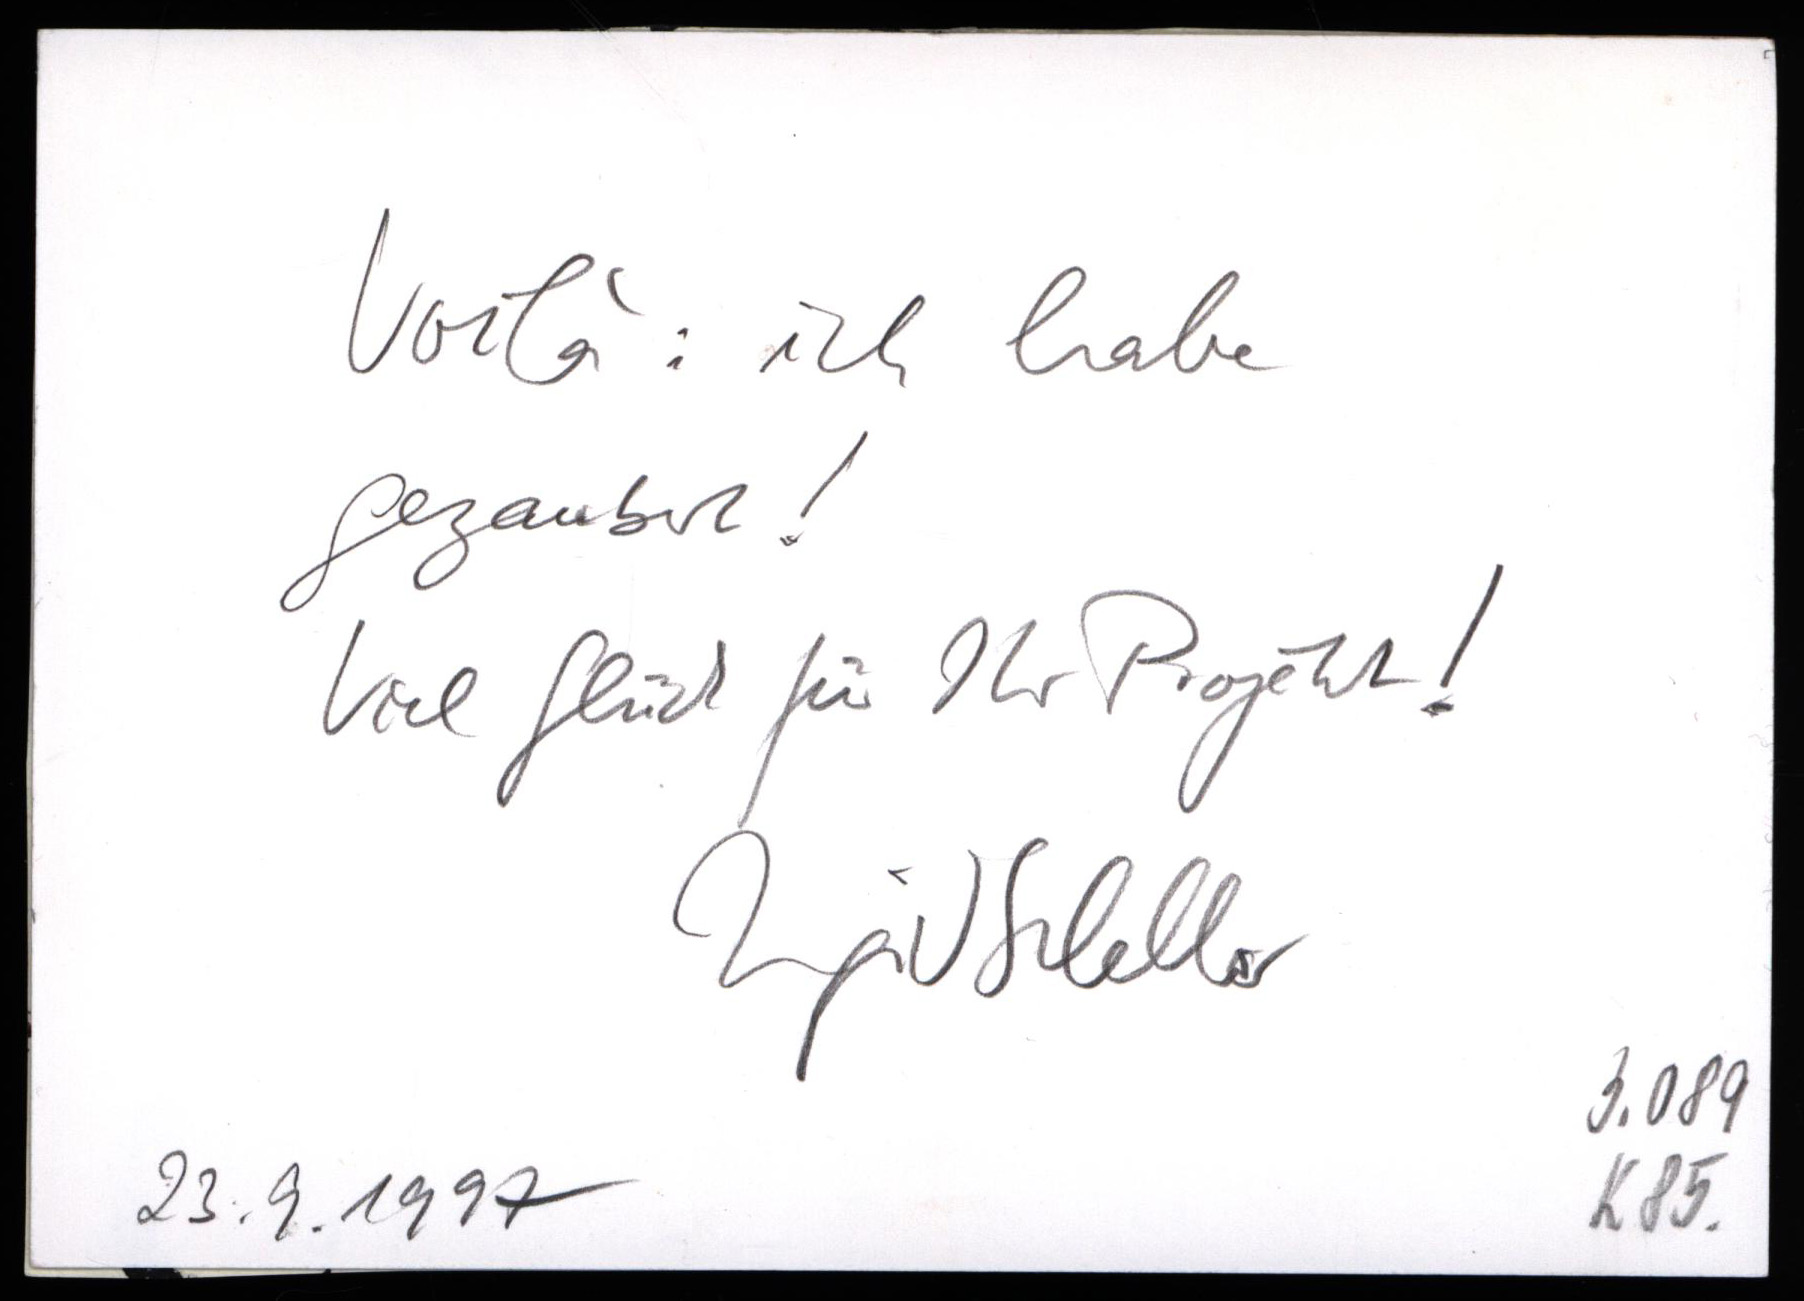 Voilà: ich habe
gezaubert!
Viel Glück für Ihr Projekt!
Ingrid
23.9.1997
3.089
K 85.